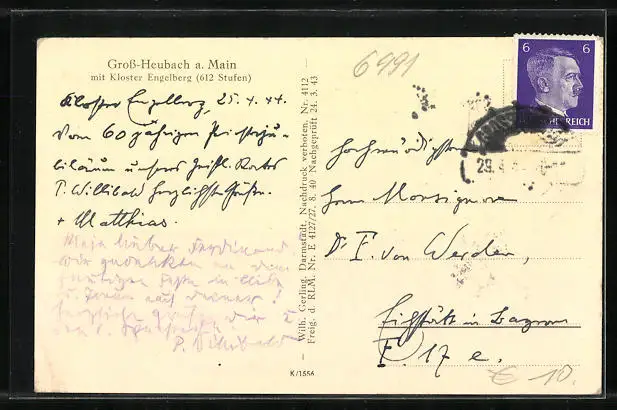 6991
Groß-Heubach a. Main
mit Kloster Engelberg (612 Stufen)
Kloster Engelberg, 25. 4. 44.
Vom 60jährigen Priesterju-
biläum unseres Geistl. Rates
P. Willibald herzlichste Grüße.
+ Matthias.
Mein lieber Ferdinand
wir gedenken an dem
heutigen
P. Willibald
Wilh. Gerling, Darmstadt, Nachdruck verboten, Nr. 4112
Freig. d. RLM. Nr. E 4127/27. 8. 40 Nachgeprüft 24. 3. 43
K/1556
6 6
REICH
29. 4.
Hochwürdigsten
Herrn Monsignore
Dr. F. von Werden,
Eichstätt in Bayern
P. 17 e.
€ 10.